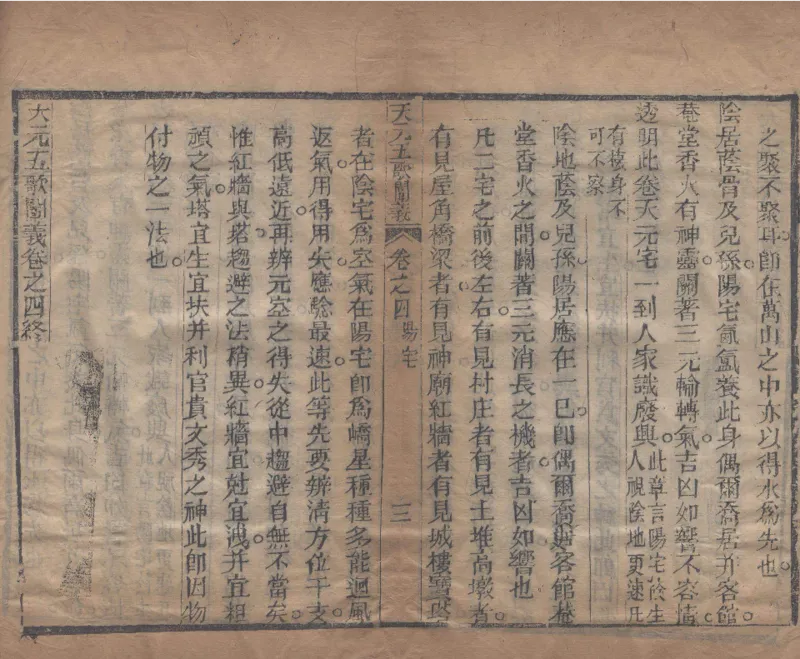 之聚不聚耳卽在萬山之中亦以得水爲先也
陰居蔭骨及兒孫陽宅氤氳養此身偶爾喬居并客館
菴堂香火有神靈關著三元輪轉氣吉凶如響不容情
透明此卷天元宅一到人家識廢興此章言陽宅蔭生人視陰地更速凡
有棲身不可不察
陰地蔭及兒孫陽居應在一已卽偶爾喬居客館菴
堂香火之間關著三元消長之機者吉凶如響也
凡二宅之前後左右有見村庄者有見土堆高墩者
有見屋角橋梁者有見神廟紅牆者有見城樓寶塔
天元五歌闡義 卷之四 陽宅 三
者在陰宅爲空氣在陽宅卽爲嶠星種種多能迴風
返氣用得用失應驗最速此等先要辨淸方位干支
高低遠近再辨元空之得失從中趨避自無不當矣
惟紅牆與塔趨避之法稍異紅牆宜尅宜洩并宜相
頑之氣塔宜生宜扶并利官貴文秀之神此卽因物
付物之一法也
天元五歌闡義卷之四終